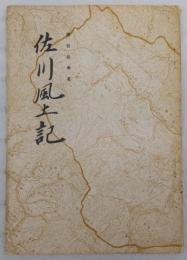 佐川風土記